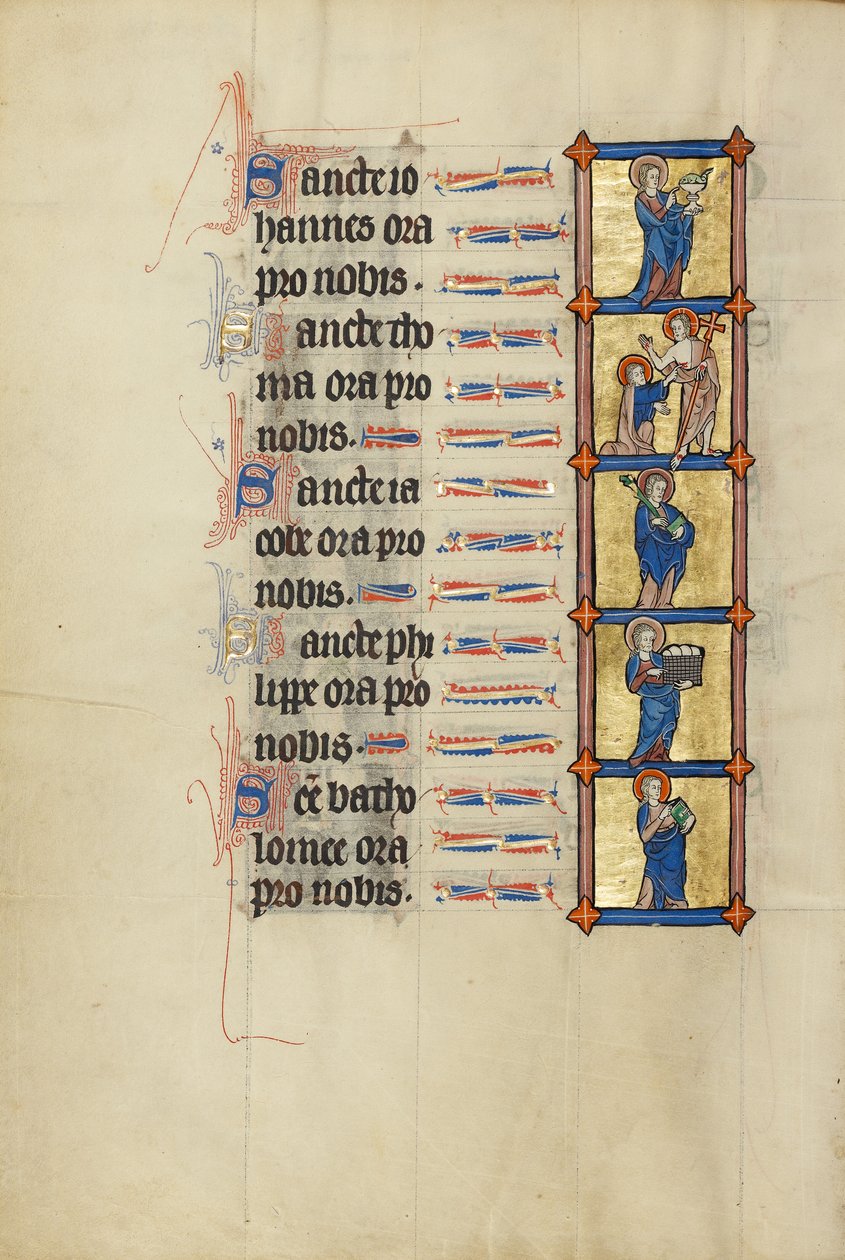 Sancte io
hannes ora
pro nobis.
Sancte tho
ma ora pro
nobis.
Sancte ia
cobe ora pro
nobis.
Sancte phi
lippe ora pro
nobis.
Sce batho
lomee ora
pro nobis.